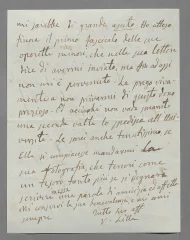 mi sarebbe di grande ajuto. Ho atteso
finora il primo fascicolo delle sue
operette minori, che nella sua lettera
dice di avermi inviato, ma fin d'oggi
non mi è pervenuto. La prego viva-
mente a non privarmi di questo dono
prezioso. E acciocchè non vada smarrito
una seconda volta lo spedisca all' Uni-
versità. Le sarei anche tenutissimo se
Ella si compiacesse mandarmi la
sua fotografia, che terrei come un
tesoro tanto più se si degnasse
scrivere una parola di amicizia ed affetto
mi conservi la sua benevolenza e mi ami
sempre.
Tutto suo aff.